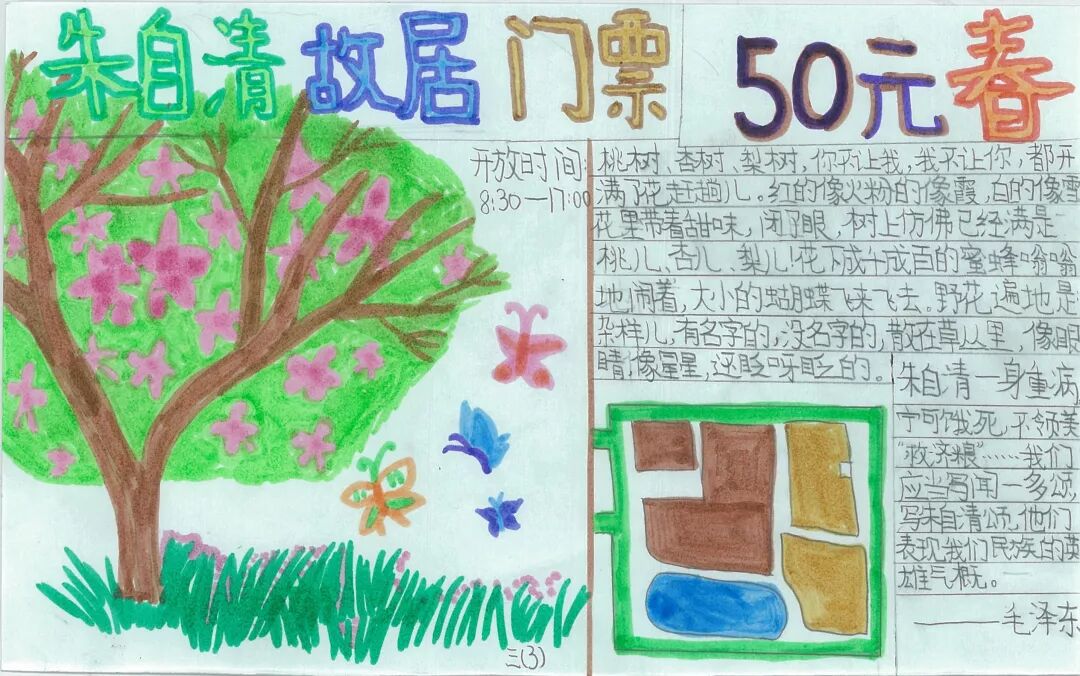 朱自清故居门票 50元 春
开放时间:
8:30—17:00
桃树、杏树、梨树,你不让我,我不让你,都开
满了花赶趟儿。红的像火粉的像霞,白的像雪
花里带着甜味,闭了眼,树上仿佛已经满是
桃儿、杏儿、梨儿!花下成千成百的蜜蜂嗡嗡
地闹着,大小的蝴蝶飞来飞去。野花遍地是
杂样儿,有名字的,没名字的,散在草丛里,像眼
睛,像星星,还眨呀眨的。
朱自清一身重病,
宁可饿死,不领美
“救济粮”……我们
应当写闻一多颂,
写朱自清颂,他们
表现我们民族的英
雄气概。
——毛泽东
三(3)